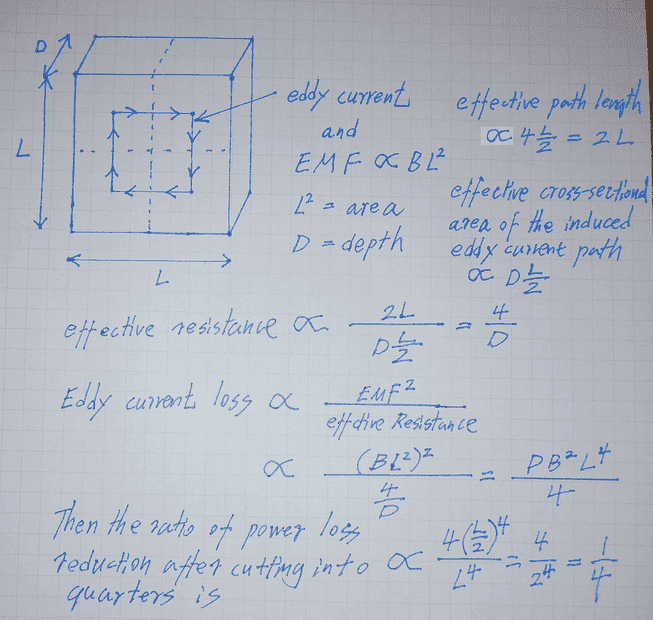 D
L
L
eddy current
and
EMF ∝ BL²
L² = area
D = depth
effective path length
∝ 4 L/2 = 2L
effective cross-sectional
area of the induced
eddy current path
∝ D L/2
effective resistance ∝ 2L / (D L/2) = 4/D
Eddy current loss ∝ EMF² / effctive Resistance
∝ (BL²)² / (4/D) = DB²L⁴ / 4
Then the ratio of power loss
reduction after cutting into ∝ 4(L/2)⁴ / L⁴ = 4/2⁴ = 1/4
quarters is